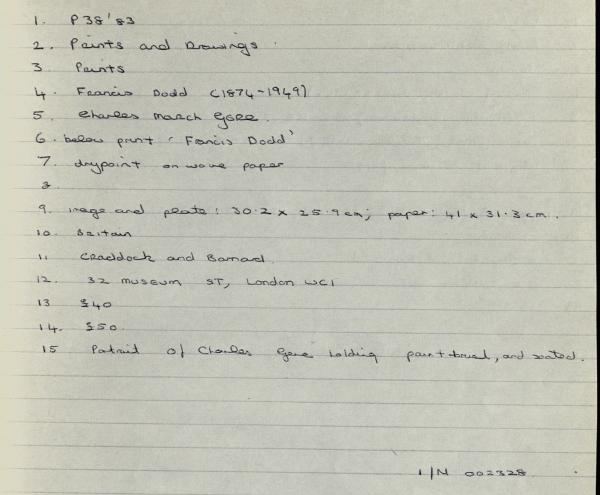 1. P38'83
2. Paints and Drawings.
3 Paints
4. Francis Dodd (1874-1949)
5. Charles March Gere.
6. below print 'Francis Dodd'
7. drypoint on wove paper
8
9. image and plate: 30.2 x 25.9 cm; paper: 41 x 31.3 cm.
10. Britain
11 Craddock and Barnard.
12. 32 museum ST, London WC1
13 $40
14. $50.
15 Portrait of Charles Gere holding paint brush, and seated.
I/N 002328